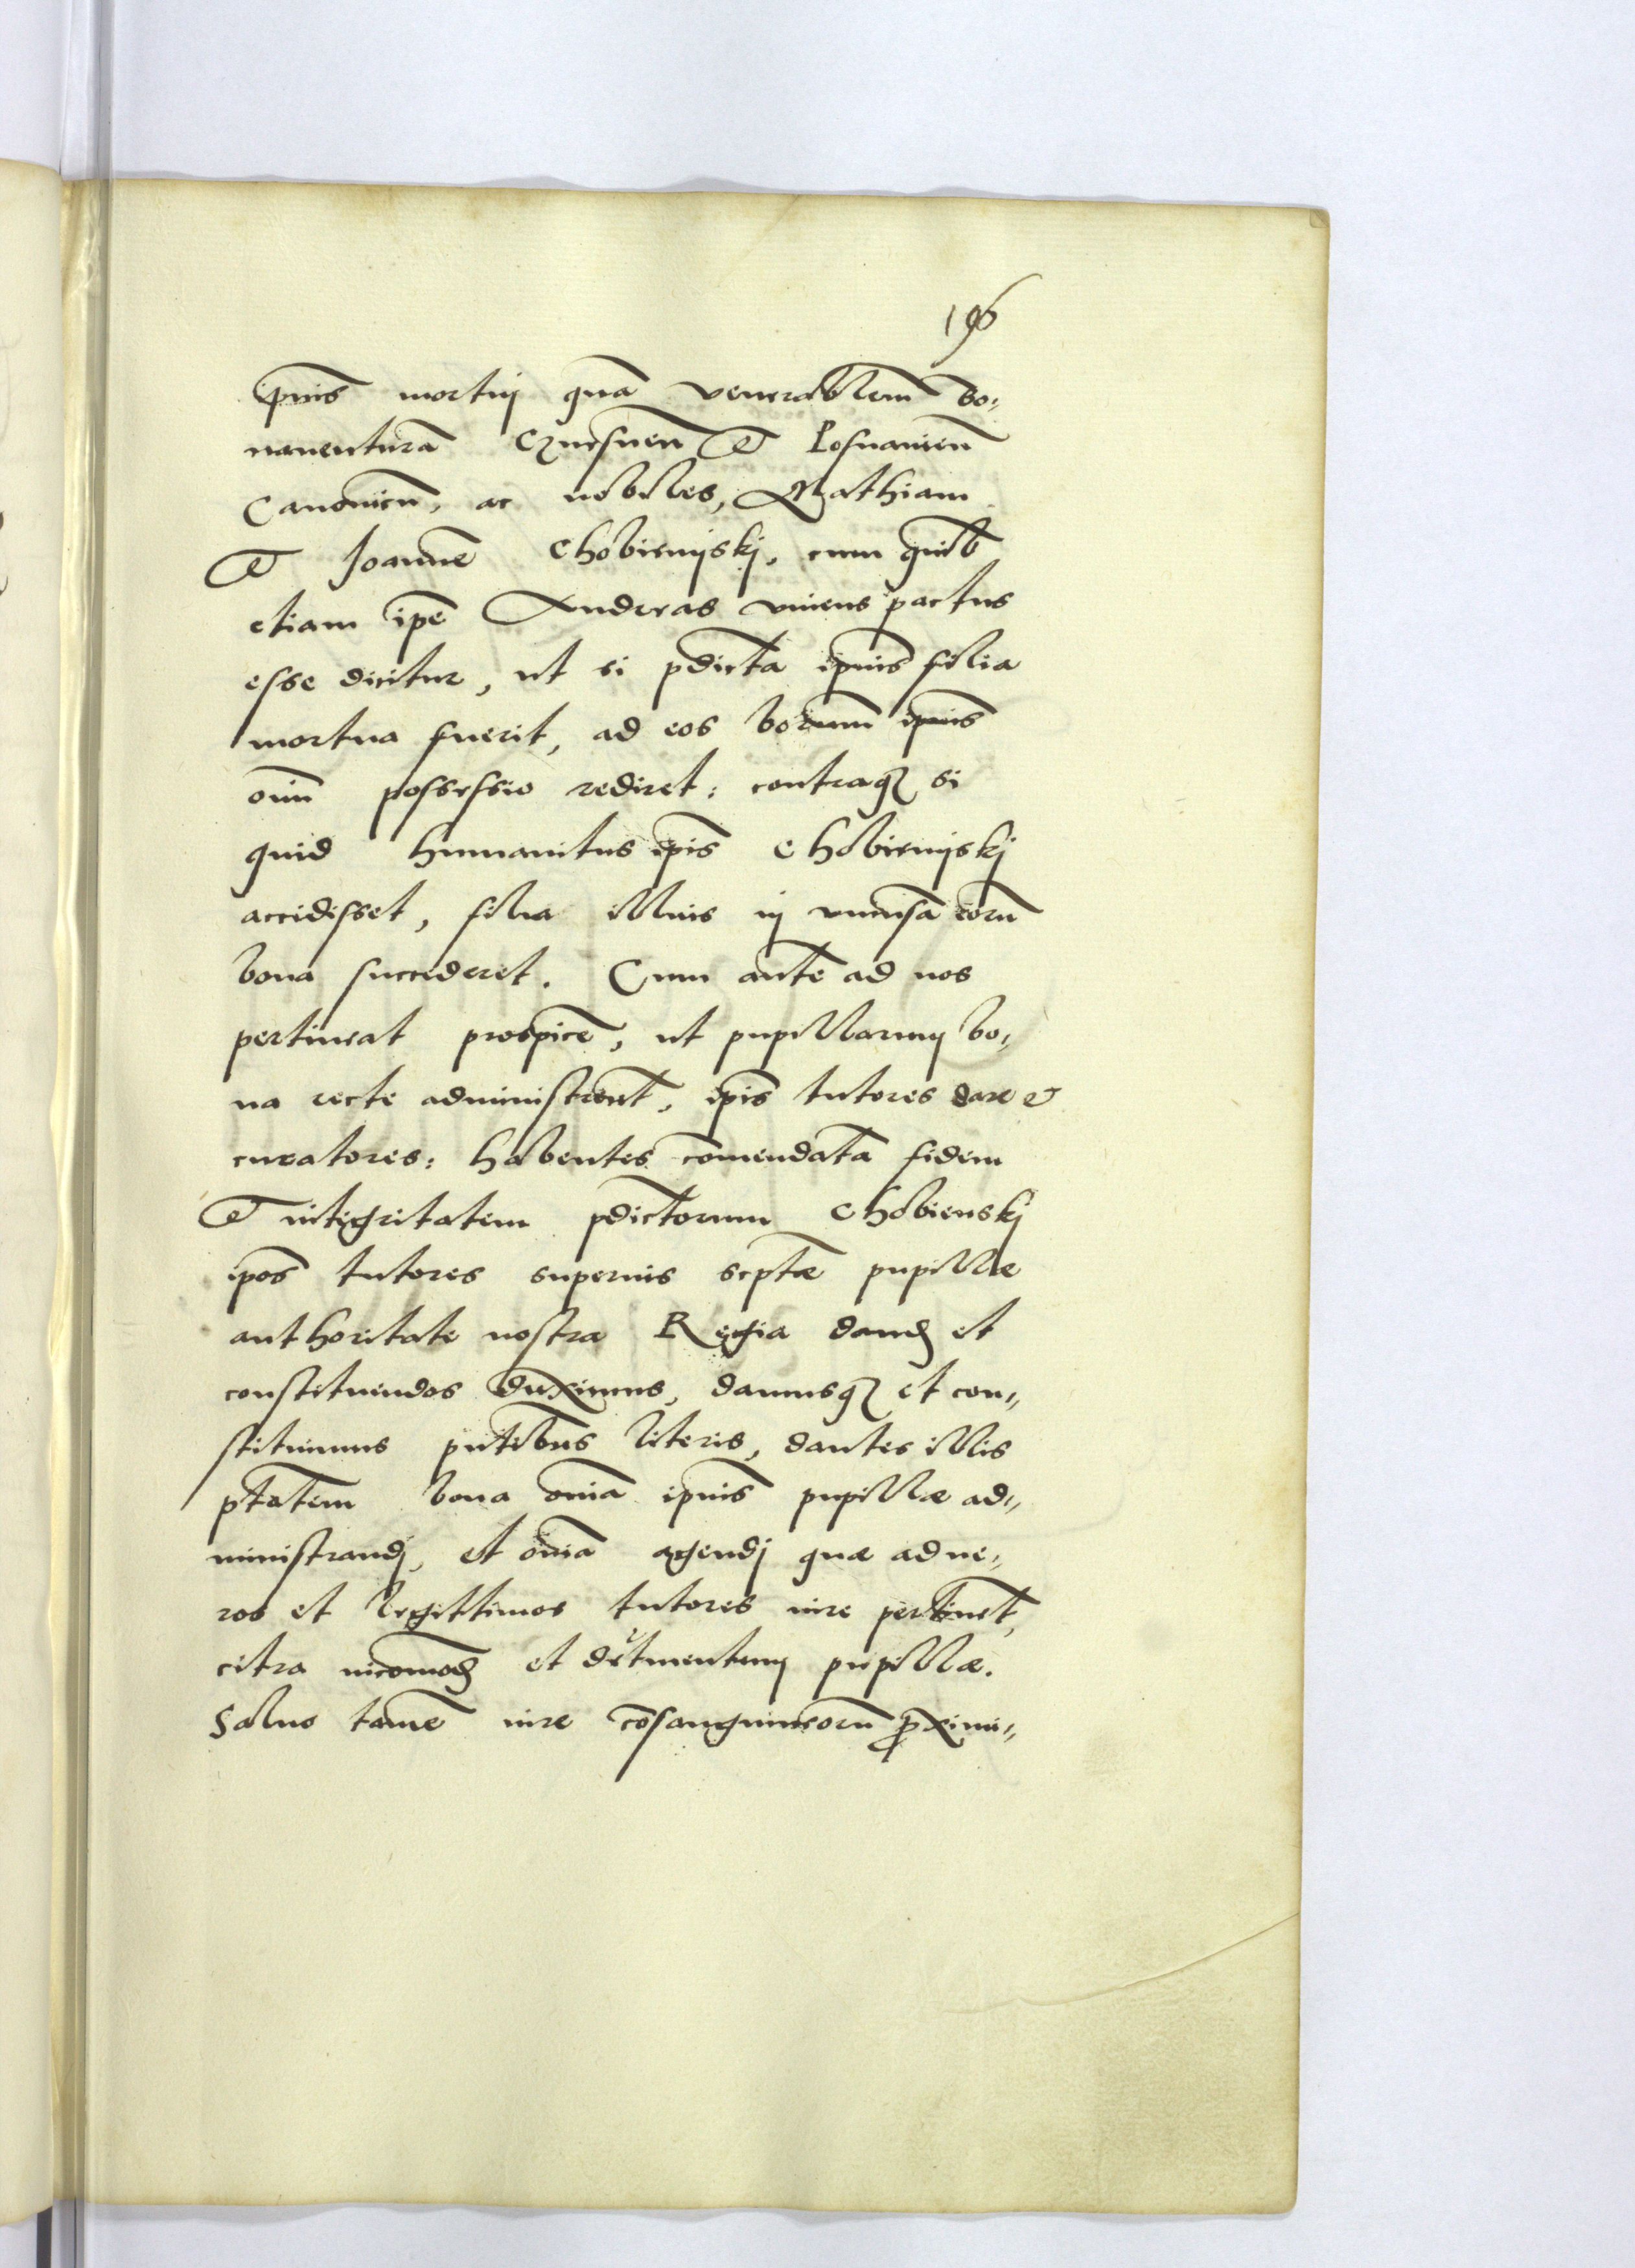 196
ipuis mortuj quā venerabilem̄ Bo,
nauenturā Gznesnen̄ et Posnanien̄
Canonicū, ac nobiles, Mathiam
et Joannē Chobienijskj, cum quib
etiam ipē Andreas viuens pactus
esse dicitur, ut si pdicta ipuis filia
mortua fuerit, ad eos bonorum ipuis
oīm possessio rediret: contraq3 si
quid humanitus ipis Chobienijskj
accidisset, filia illius in vniuersa eorū
bona succederet. Cum aūte ad nos
pertineat prospicē, ut pupillarum bo,
na recte administrent, ipis tutores dare et
curatores: habentes comendatā fidem
et integritatem pdictorum Chobienskj
ipos tutores superius scptæ pupillæ
authoritate nostra Regia dand et
constituendos duximus, damusq3 et con,,
stituimus pntibus literis, dantes illis
ptatem bona omīa ipuis pupillæ ad,,
ministrandj, et omīa agendj quæ ad ue,,
ros et legittimos tutores iure pertinet,
citra incomod et detrimentum pupillæ.
Saluo tamē iure cōsanguineorū proximi,,